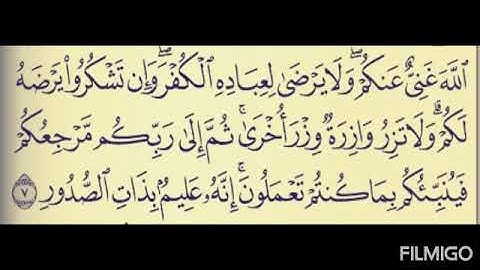 ٱللَّهَ غَنِيٌّ عَنكُمۡۖ وَلَا يَرۡضَىٰ لِعِبَادِهِ ٱلۡكُفۡرَۖ وَإِن تَشۡكُرُواْ يَرۡضَهُ
لَكُمۡۗ وَلَا تَزِرُ وَازِرَةٞ وِزۡرَ أُخۡرَىٰۚ ثُمَّ إِلَىٰ رَبِّكُم مَّرۡجِعُكُمۡ
فَيُنَبِّئُكُم بِمَا كُنتُمۡ تَعۡمَلُونَۚ إِنَّهُۥ عَلِيمُۢ بِذَاتِ ٱلصُّدُورِ ٧
FILMIGO